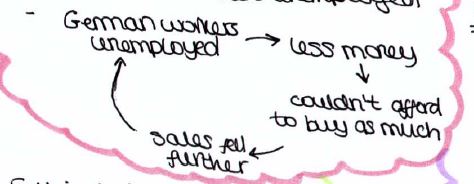 German workers
unemployed
less money
couldn't afford
to buy as much
sales fell
further